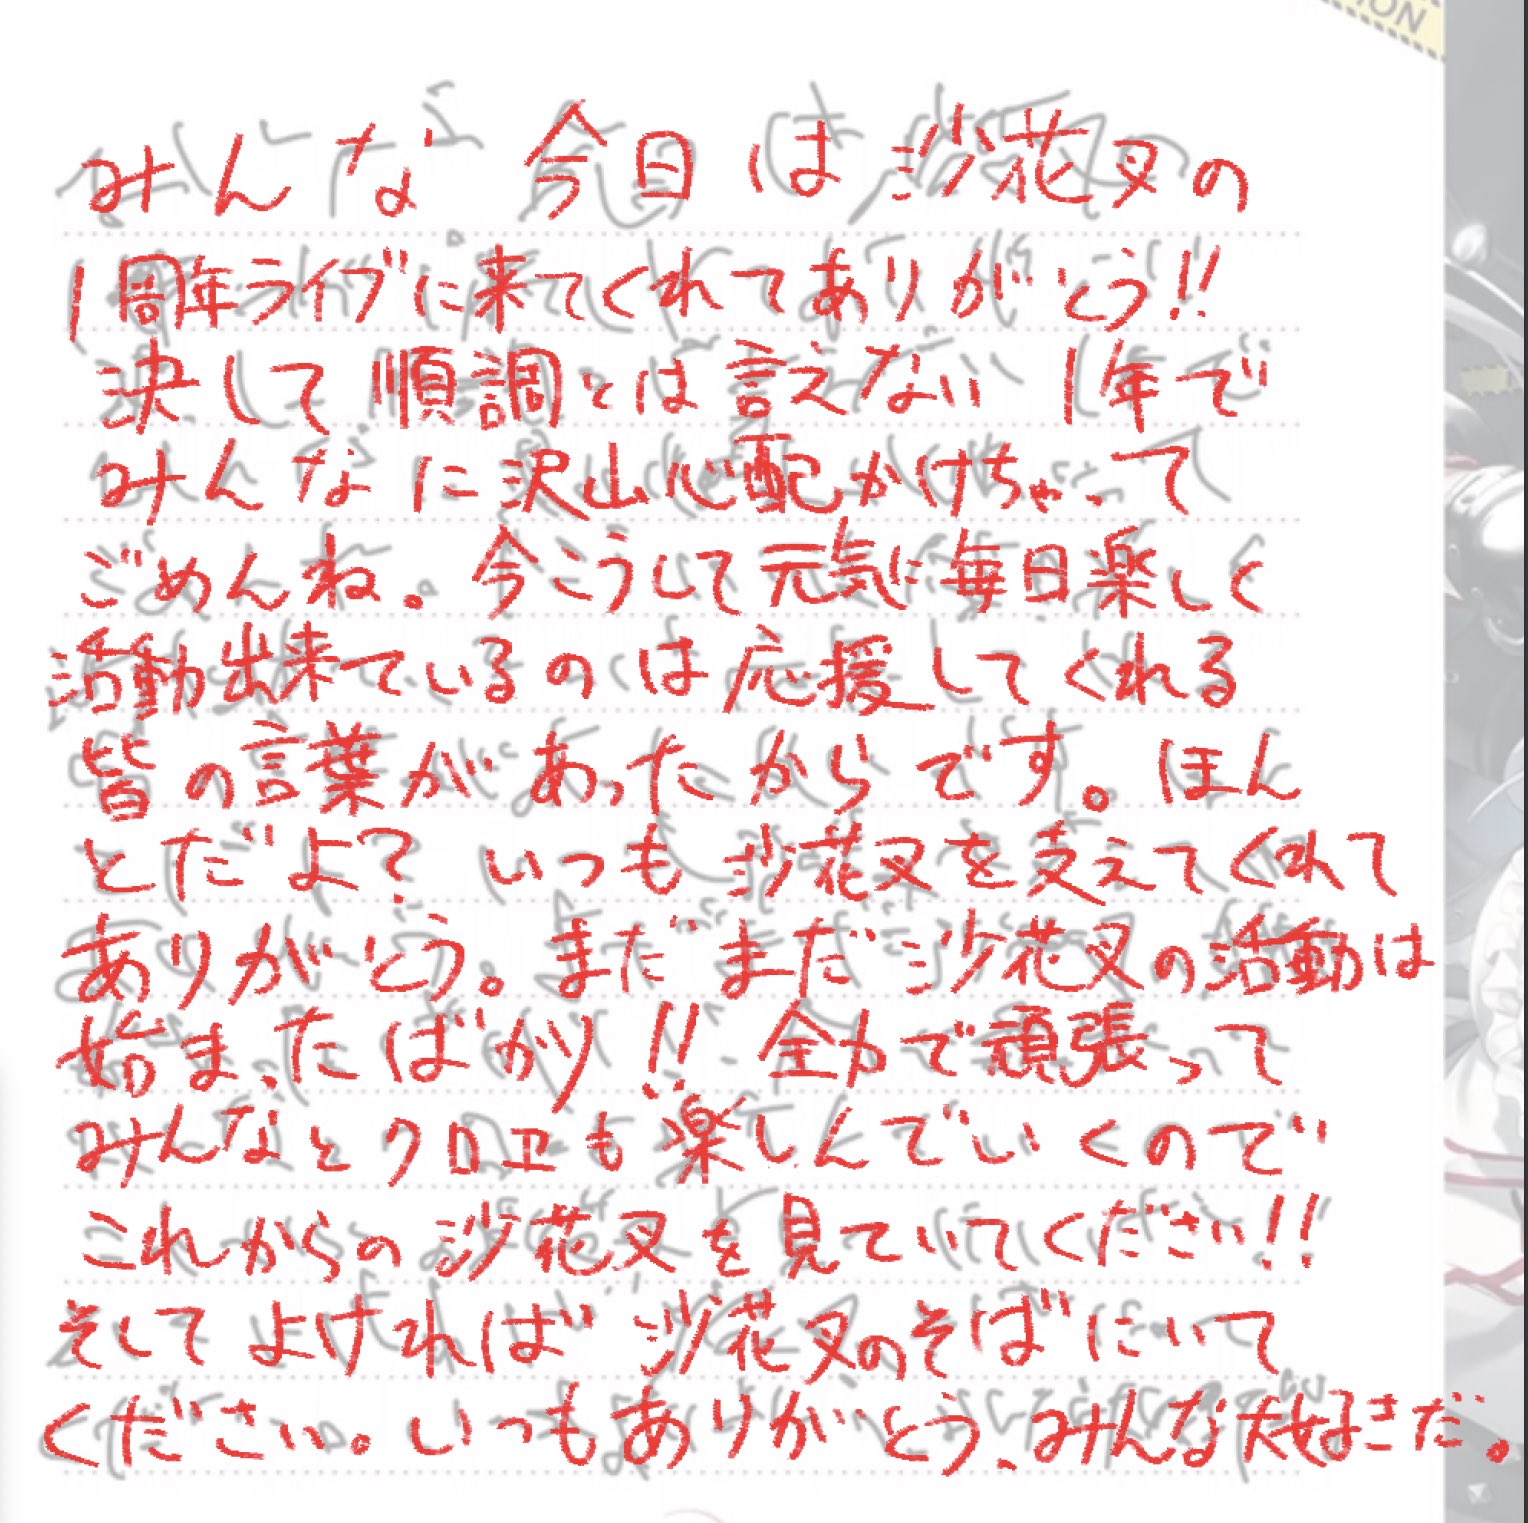 ION
みんな 今日は沙花叉の
1周年ライブに来てくれてありがとう!!
決して順調とは言えない 1年で
みんなに沢山心配かけちゃって
ごめんね。今こうして元気に毎日楽しく
活動出来ているのは応援してくれる
皆の言葉があったからです。ほん
とだよ?いつも沙花叉を支えてくれて
ありがとう。まだまだ沙花叉の活動は
始まったばかり!! 全力で頑張って
みんなとクロヱも楽しんでいくので
これからの沙花叉を見ていてください!!
そしてよければ沙花叉のそばにいて
ください。いつもありがとう、みんな大好きだ。